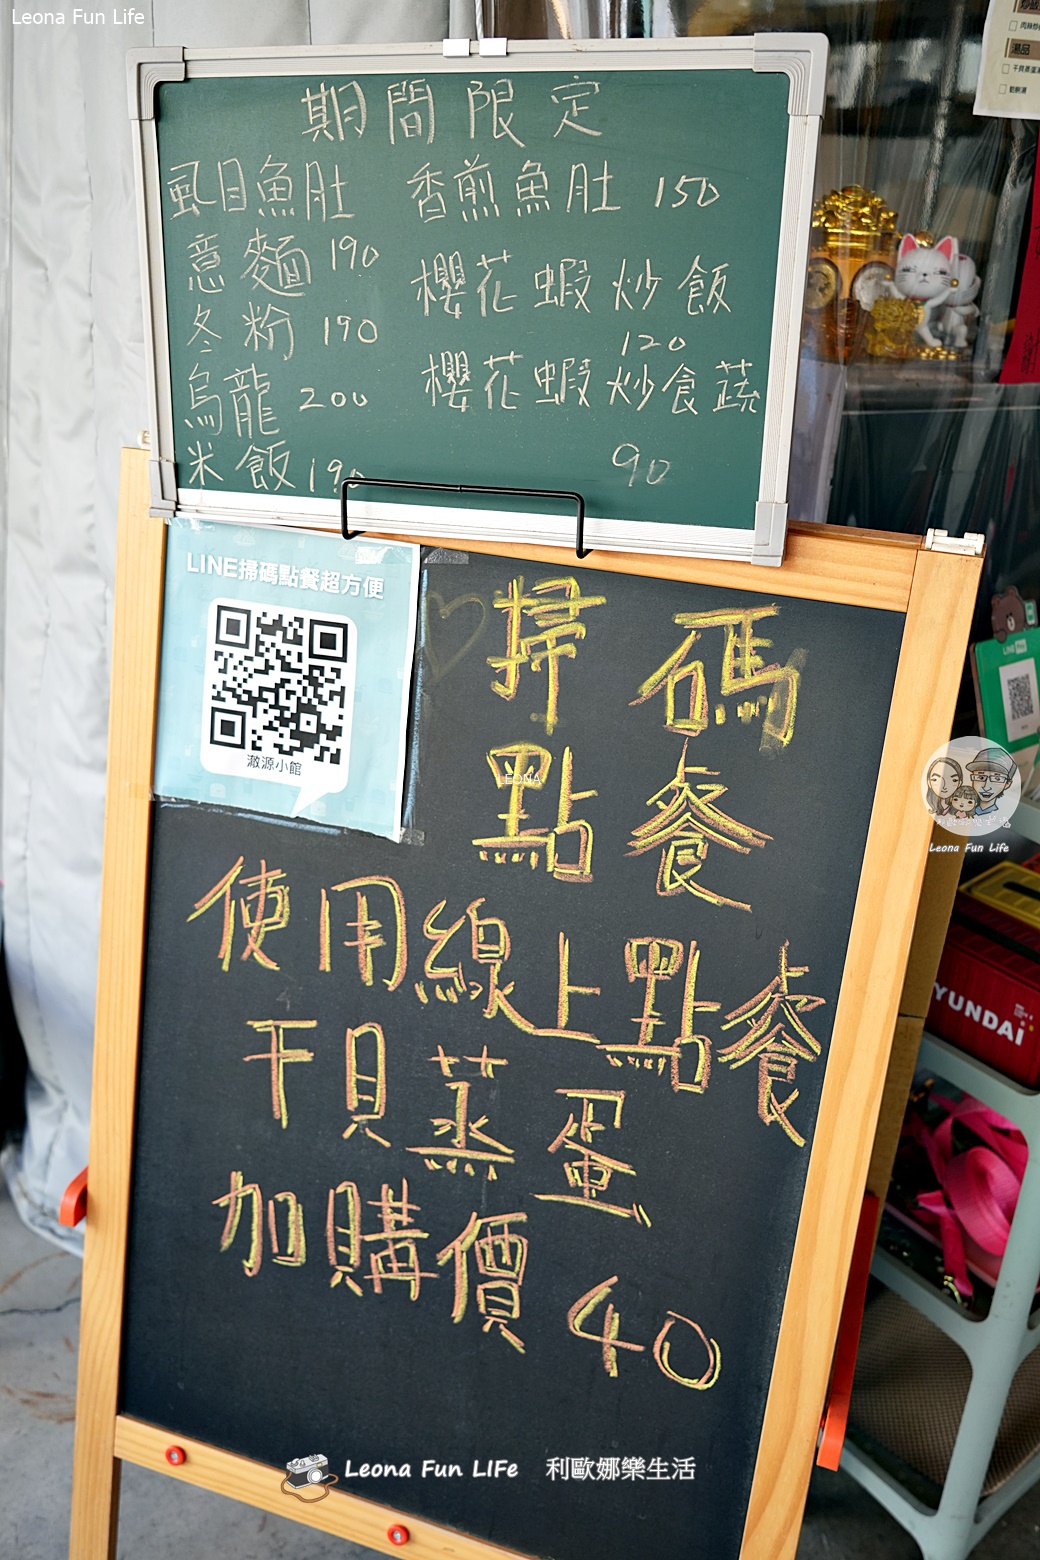 Leona Fun Life
期間限定
虱目魚肚
意麵 190
冬粉 190
烏龍 200
米飯 190
香煎魚肚 150
櫻花蝦炒飯
120
櫻花蝦炒食蔬
90
LINE掃碼點餐超方便
澈源小館
掃碼
點餐
LEONA
使用線上點餐
干貝蒸蛋
加購價 40
湯品
LINE Pay
Leona Fun Life
HYUNDAI
Leona Fun LIfe 利歐娜樂生活